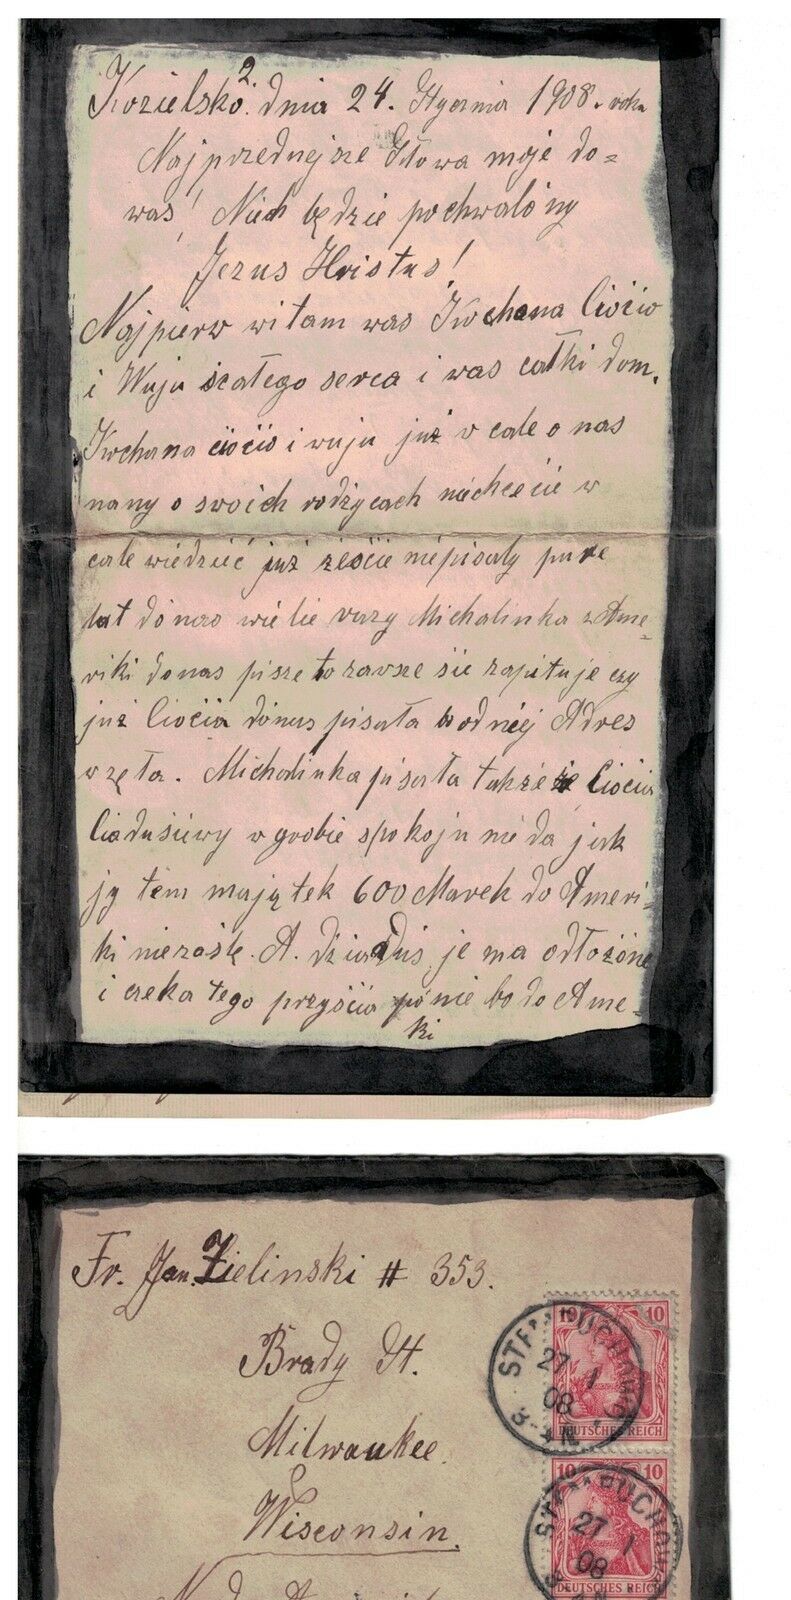 Kozielsko. dnia 24. Stycznia 1908. roku
2
Najprzednejsze Słowa moje do=
was! Niech będzie pochwalóny
Jezus Hristus!
Najpierw witam was Kochana Ciócio
i Wuju szcałego serca i was całki dom.
Kochana ciócio i wuju już v cale o nas
nany o swoich rodżycach niechcecie w
cale wiedzieć już żeście niepisaly pare
lat dónas wie lie razy Michalinka z Ame=
riki donas pisze to zawsze sie zapituje czy
już Ciócia dónas pisała bo odniéj Adres
wzęła. Michalinka pisała takze że Ciócia
Ciodusiewy w grobie spokoju nie da jak
jy tem mająjtek 600 Marek do Ameri=
ki nieześlę. A. dziaduś je ma odłożóne
i czeka tego przyścia pó nie bo do Ame=
ki
Fr. Jan. Zielinski # 353.
Brady St.
Milwaukee.
Wisconsin.
10 10
DEUTSCHES REICH
27 1
08
10 10
DEUTSCHES REICH
27 1
08